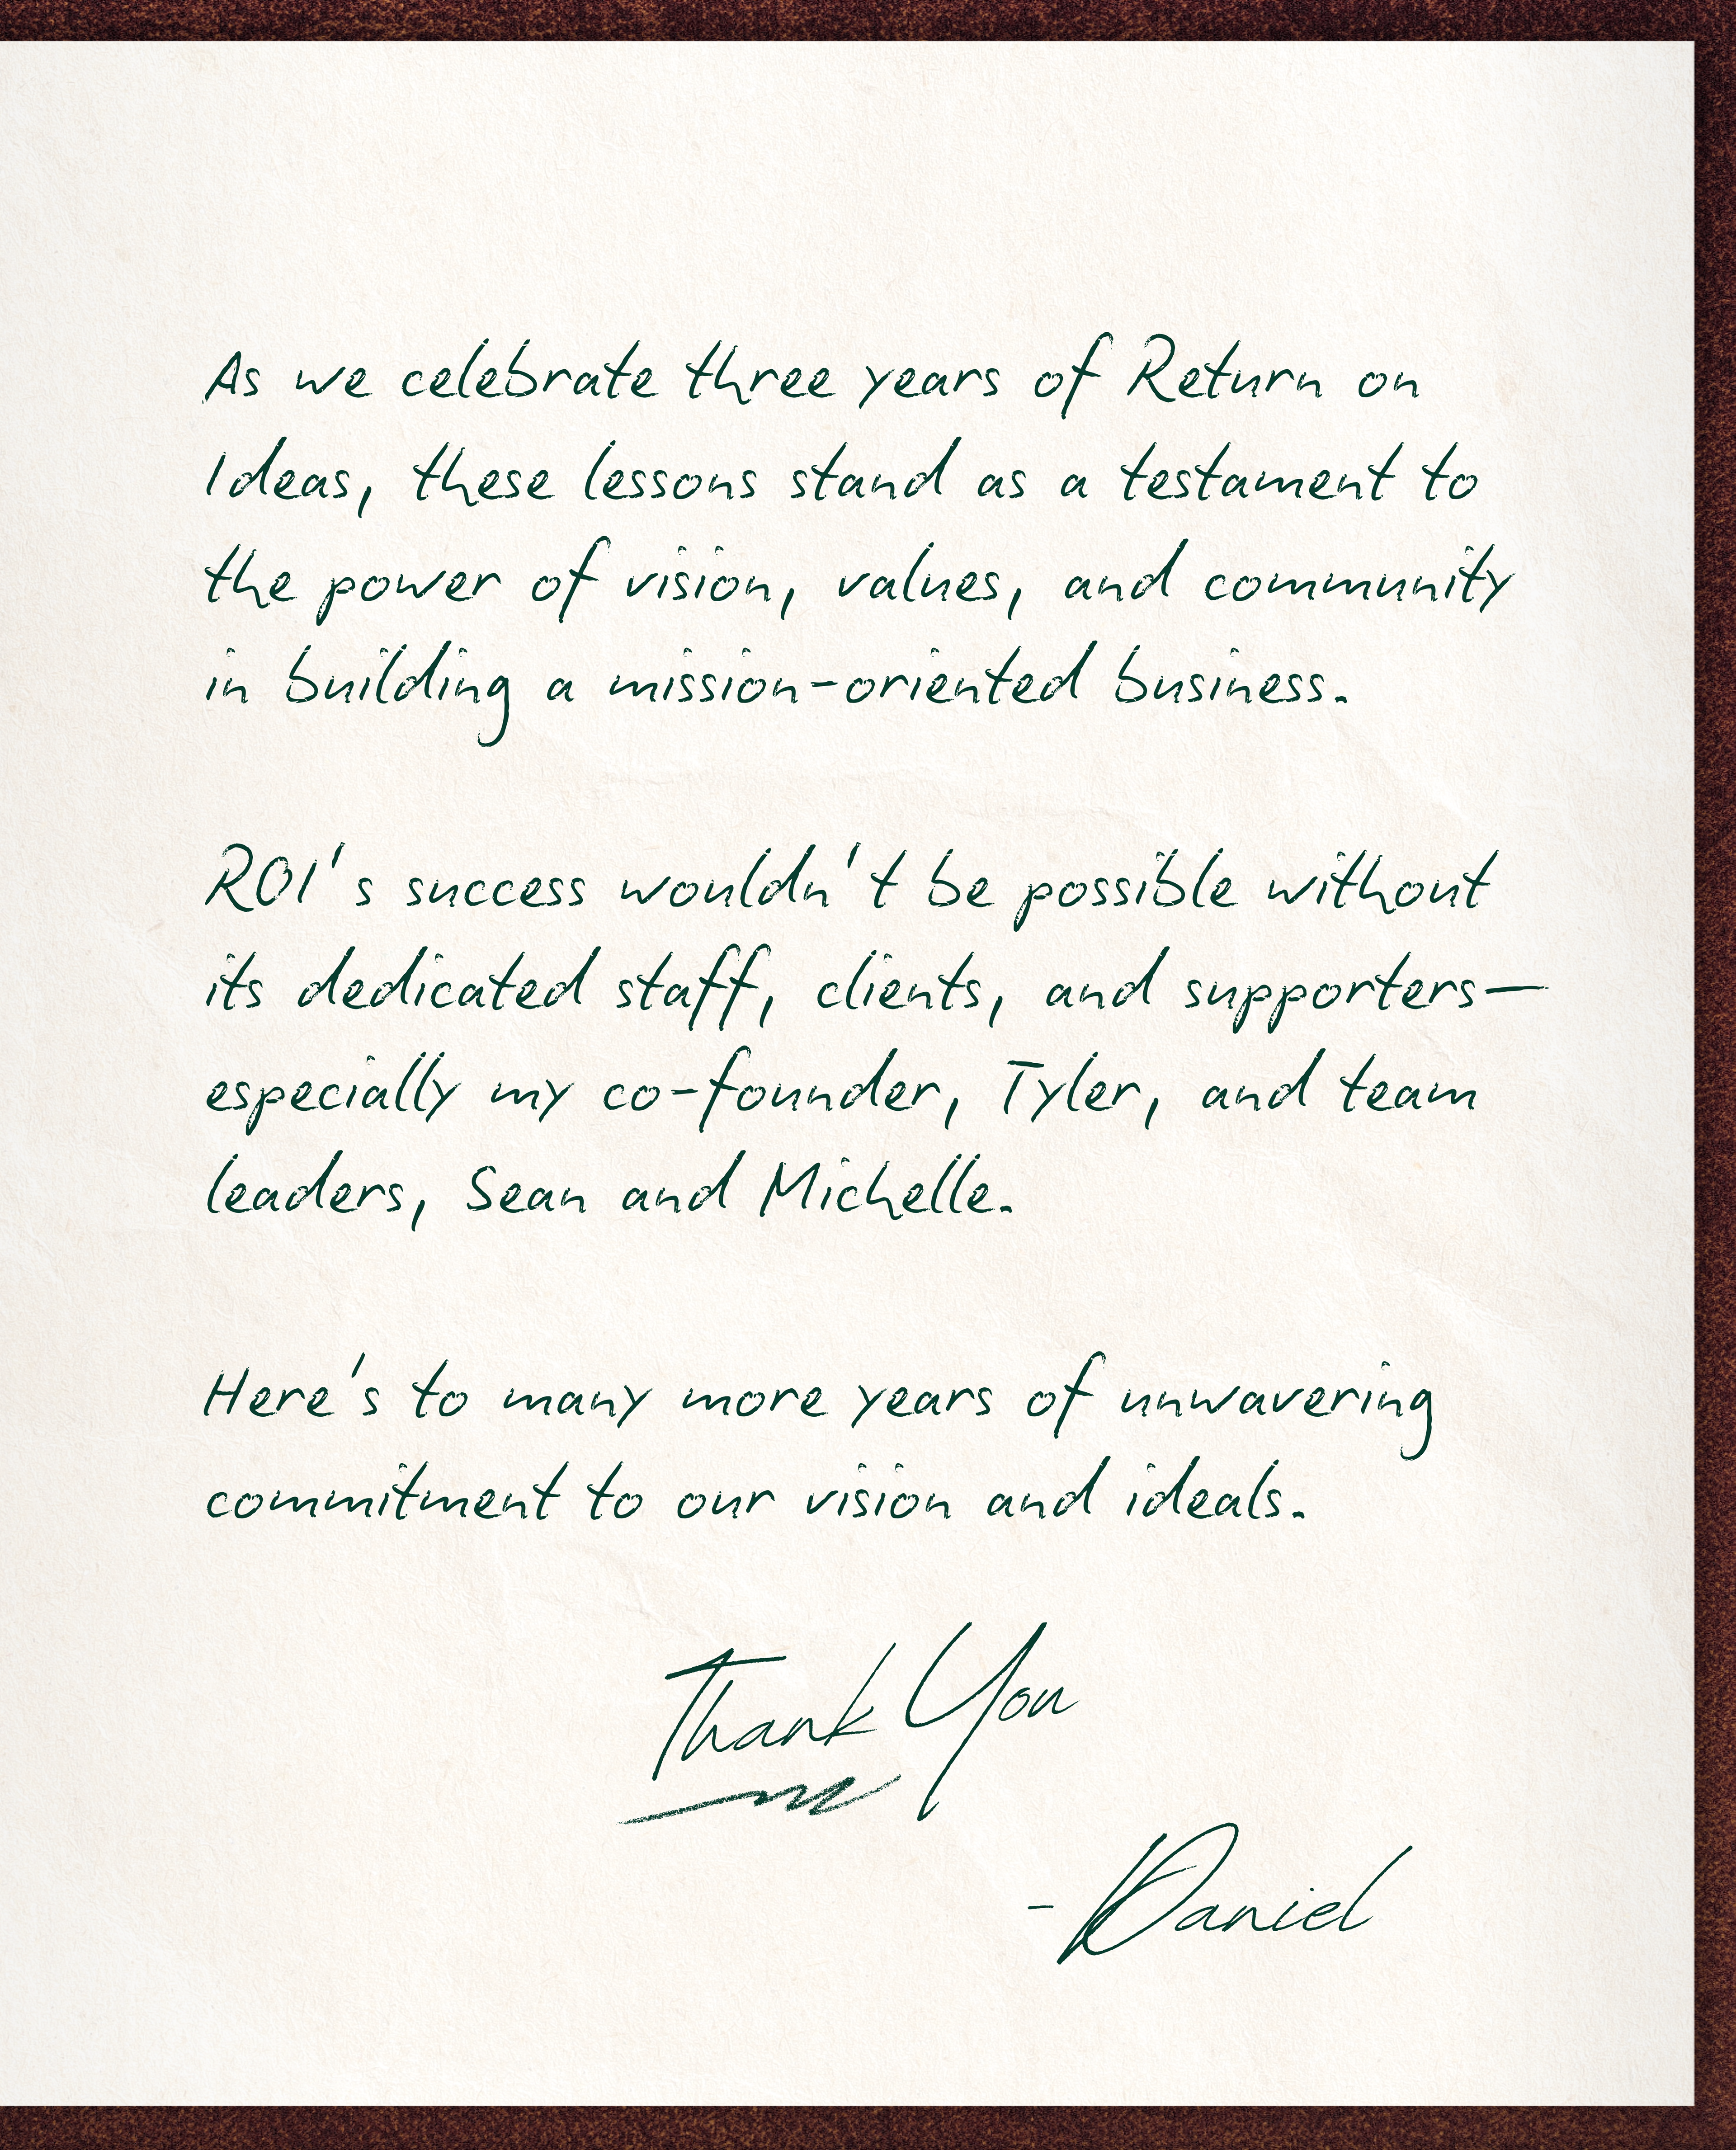 As we celebrate three years of Return on
Ideas, these lessons stand as a testament to
the power of vision, values, and community
in building a mission-oriented business.
ROI's success wouldn't be possible without
its dedicated staff, clients, and supporters—
especially my co-founder, Tyler, and team
leaders, Sean and Michelle.
Here's to many more years of unwavering
commitment to our vision and ideals.
Thank You
- Daniel